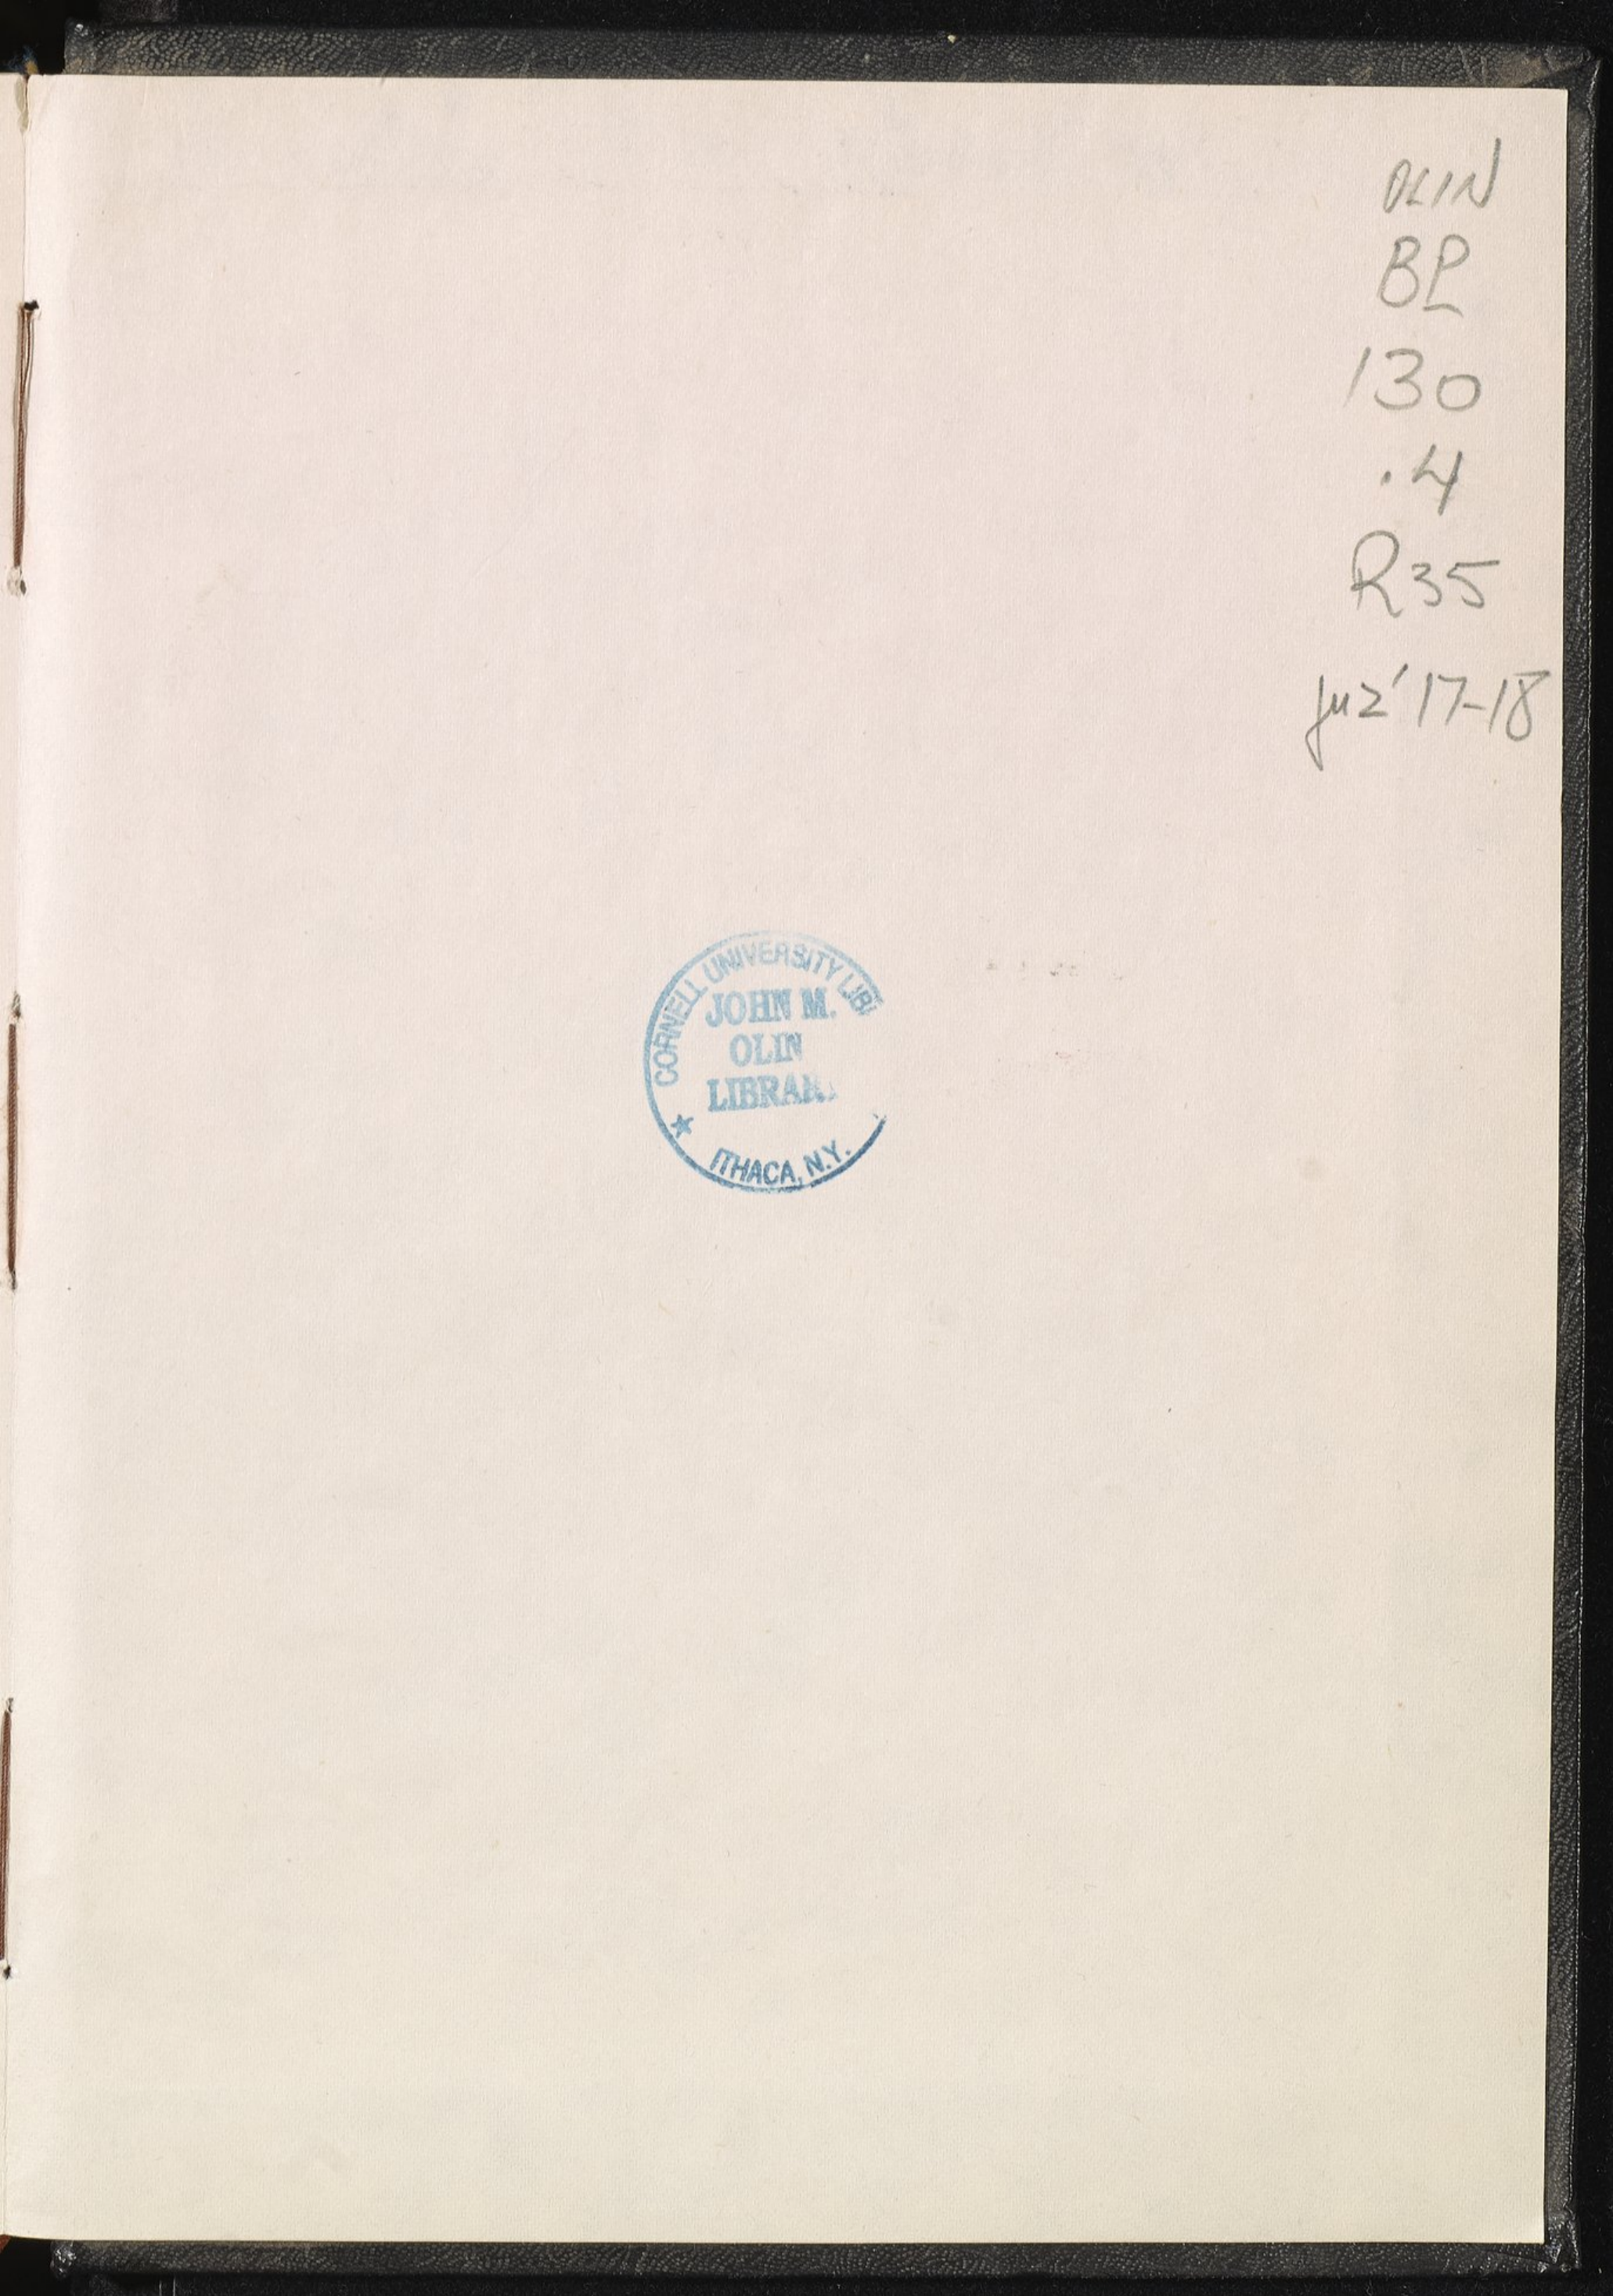 OLIN
BP
130
.4
R35
juz' 17-18
CORNELL UNIVERSITY LIB
JOHN M.
OLIN
LIBRAR
ITHACA, N.Y.